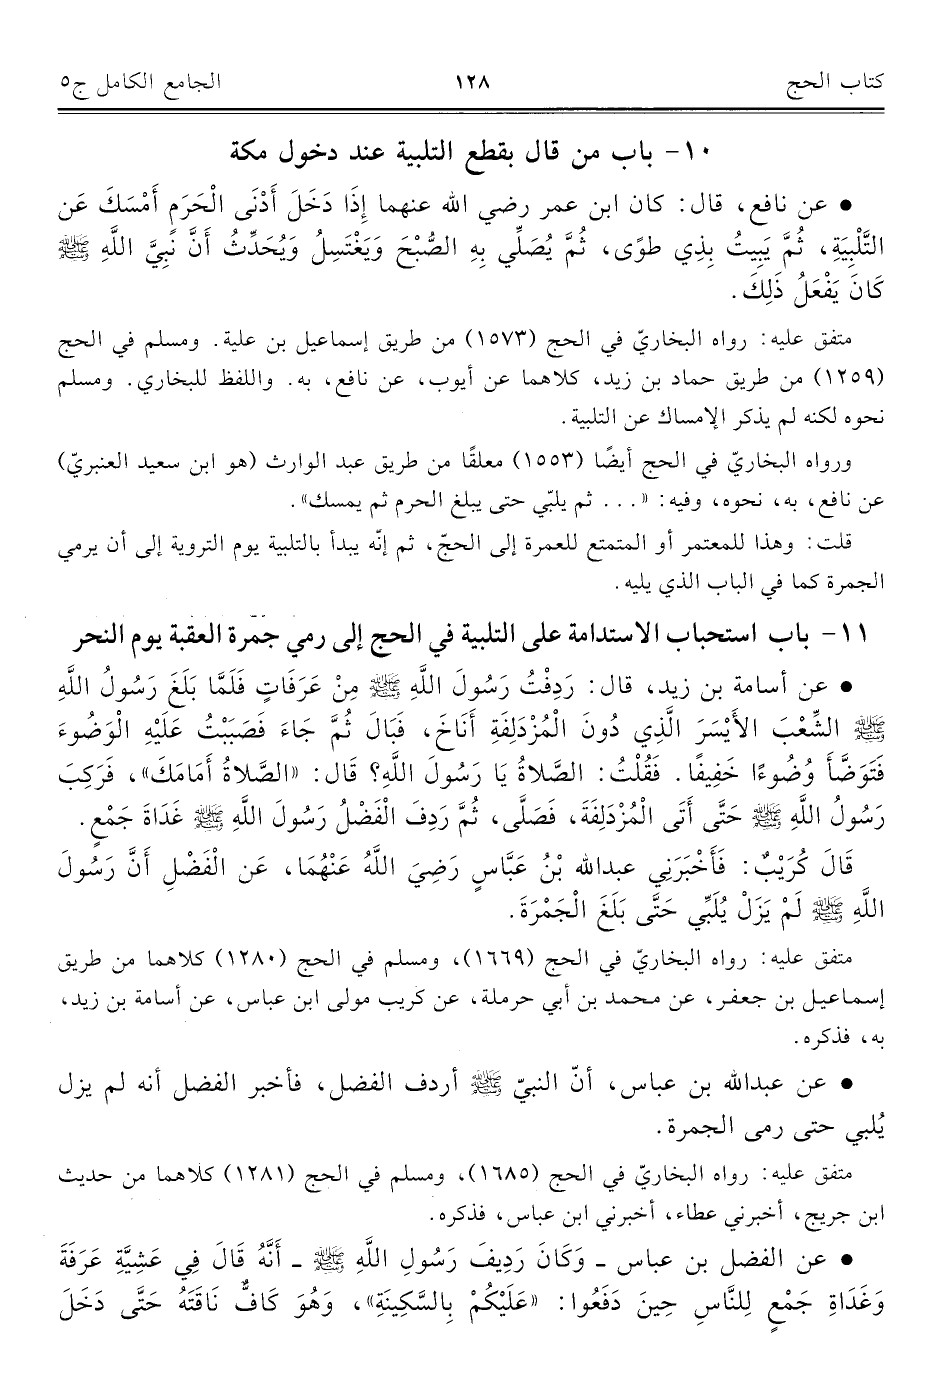 كتاب الحج ١٢٨ الجامع الكامل ج٥
١٠- باب من قال بقطع التلبية عند دخول مكة
• عن نافع، قال: كان ابن عمر رضي الله عنهما إِذَا دَخَلَ أَدْنَى الْحَرَمِ أَمْسَكَ عَنِ
التَّلْبِيَةِ، ثُمَّ يَبِيتُ بِذِي طوًى، ثُمَّ يُصَلِّي بِهِ الصُّبْحَ وَيَغْتَسِلُ وَيُحَدِّثُ أَنَّ نَبِيَّ اللَّهِ ﷺ
كَانَ يَفْعَلُ ذَلِكَ.
متفق عليه: رواه البخاريّ في الحج (١٥٧٣) من طريق إسماعيل بن علية. ومسلم في الحج
(١٢٥٩) من طريق حماد بن زيد، كلاهما عن أيوب، عن نافع، به. واللفظ للبخاري. ومسلم
نحوه لكنه لم يذكر الإمساك عن التلبية.
ورواه البخاريّ في الحج أيضًا (١٥٥٣) معلقًا من طريق عبد الوارث (هو ابن سعيد العنبريّ)
عن نافع، به، نحوه، وفيه: «... ثم يلبّي حتى يبلغ الحرم ثم يمسك».
قلت: وهذا للمعتمر أو المتمتع للعمرة إلى الحجّ، ثم إنّه يبدأ بالتلبية يوم التروية إلى أن يرمي
الجمرة كما في الباب الذي يليه.
١١- باب استحباب الاستدامة على التلبية في الحج إلى رمي جمرة العقبة يوم النحر
• عن أسامة بن زيد، قال: رَدِفْتُ رَسُولَ اللَّهِ ﷺ مِنْ عَرَفَاتٍ فَلَمَّا بَلَغَ رَسُولُ اللَّهِ
ﷺ الشِّعْبَ الأَيْسَرَ الَّذِي دُونَ الْمُزْدَلِفَةِ أَنَاخَ، فَبَالَ ثُمَّ جَاءَ فَصَبَبْتُ عَلَيْهِ الْوَضُوءَ
فَتَوَضَّأَ وُضُوءًا خَفِيفًا. فَقُلْتُ: الصَّلاةُ يَا رَسُولَ اللَّهِ؟ قَالَ: «الصَّلاةُ أَمَامَكَ»، فَرَكِبَ
رَسُولُ اللَّهِ ﷺ حَتَّى أَتَى الْمُزْدَلِفَةَ، فَصَلَّى، ثُمَّ رَدِفَ الْفَضْلُ رَسُولَ اللَّهِ ﷺ غَدَاةَ جَمْعٍ.
قَالَ كُرَيْبٌ: فَأَخْبَرَنِي عبدالله بْنُ عَبَّاسٍ رَضِيَ اللَّهُ عَنْهُمَا، عَنِ الْفَضْلِ أَنَّ رَسُولَ
اللَّهِ ﷺ لَمْ يَزَلْ يُلَبِّي حَتَّى بَلَغَ الْجَمْرَةَ.
متفق عليه: رواه البخاريّ في الحج (١٦٦٩)، ومسلم في الحج (١٢٨٠) كلاهما من طريق
إسماعيل بن جعفر، عن محمد بن أبي حرملة، عن كريب مولى ابن عباس، عن أسامة بن زيد،
به، فذكره.
• عن عبدالله بن عباس، أنّ النبيّ ﷺ أردف الفضل، فأخبر الفضل أنه لم يزل
يُلبي حتى رمى الجمرة.
متفق عليه: رواه البخاريّ في الحج (١٦٨٥)، ومسلم في الحج (١٢٨١) كلاهما من حديث
ابن جريج، أخبرني عطاء، أخبرني ابن عباس، فذكره.
• عن الفضل بن عباس ـ وَكَانَ رَدِيفَ رَسُولِ اللَّهِ ﷺ ـ أَنَّهُ قَالَ فِي عَشِيَّةِ عَرَفَةَ
وَغَدَاةِ جَمْعٍ لِلنَّاسِ حِينَ دَفَعُوا: «عَلَيْكُمْ بِالسَّكِينَةِ»، وَهُوَ كَافٌّ نَاقَتَهُ حَتَّى دَخَلَ